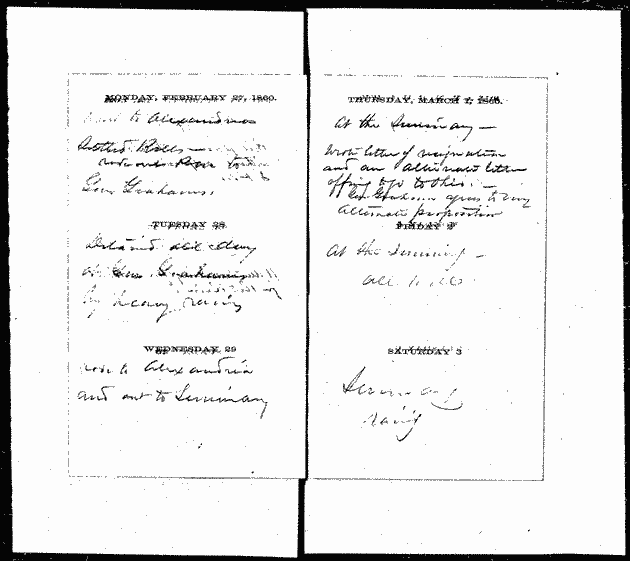 MONDAY, FEBRUARY 27, 1860.
to Alexandria
Settled Bills
rode over to
Gov Grahams.
TUESDAY 28
Detained all day
at Gov Grahams
by heavy rain
WEDNESDAY 29
rode to Alexandria
and out to Seminary
THURSDAY, MARCH 1, 1860.
At the Seminary —
Wrote letter of resignation
and an alternate letter
offering to go to Ohio. —
Gov Graham agrees to my
Alternate proposition
FRIDAY 2
At the Seminary —
all well
SATURDAY 3
Seminary
rainy